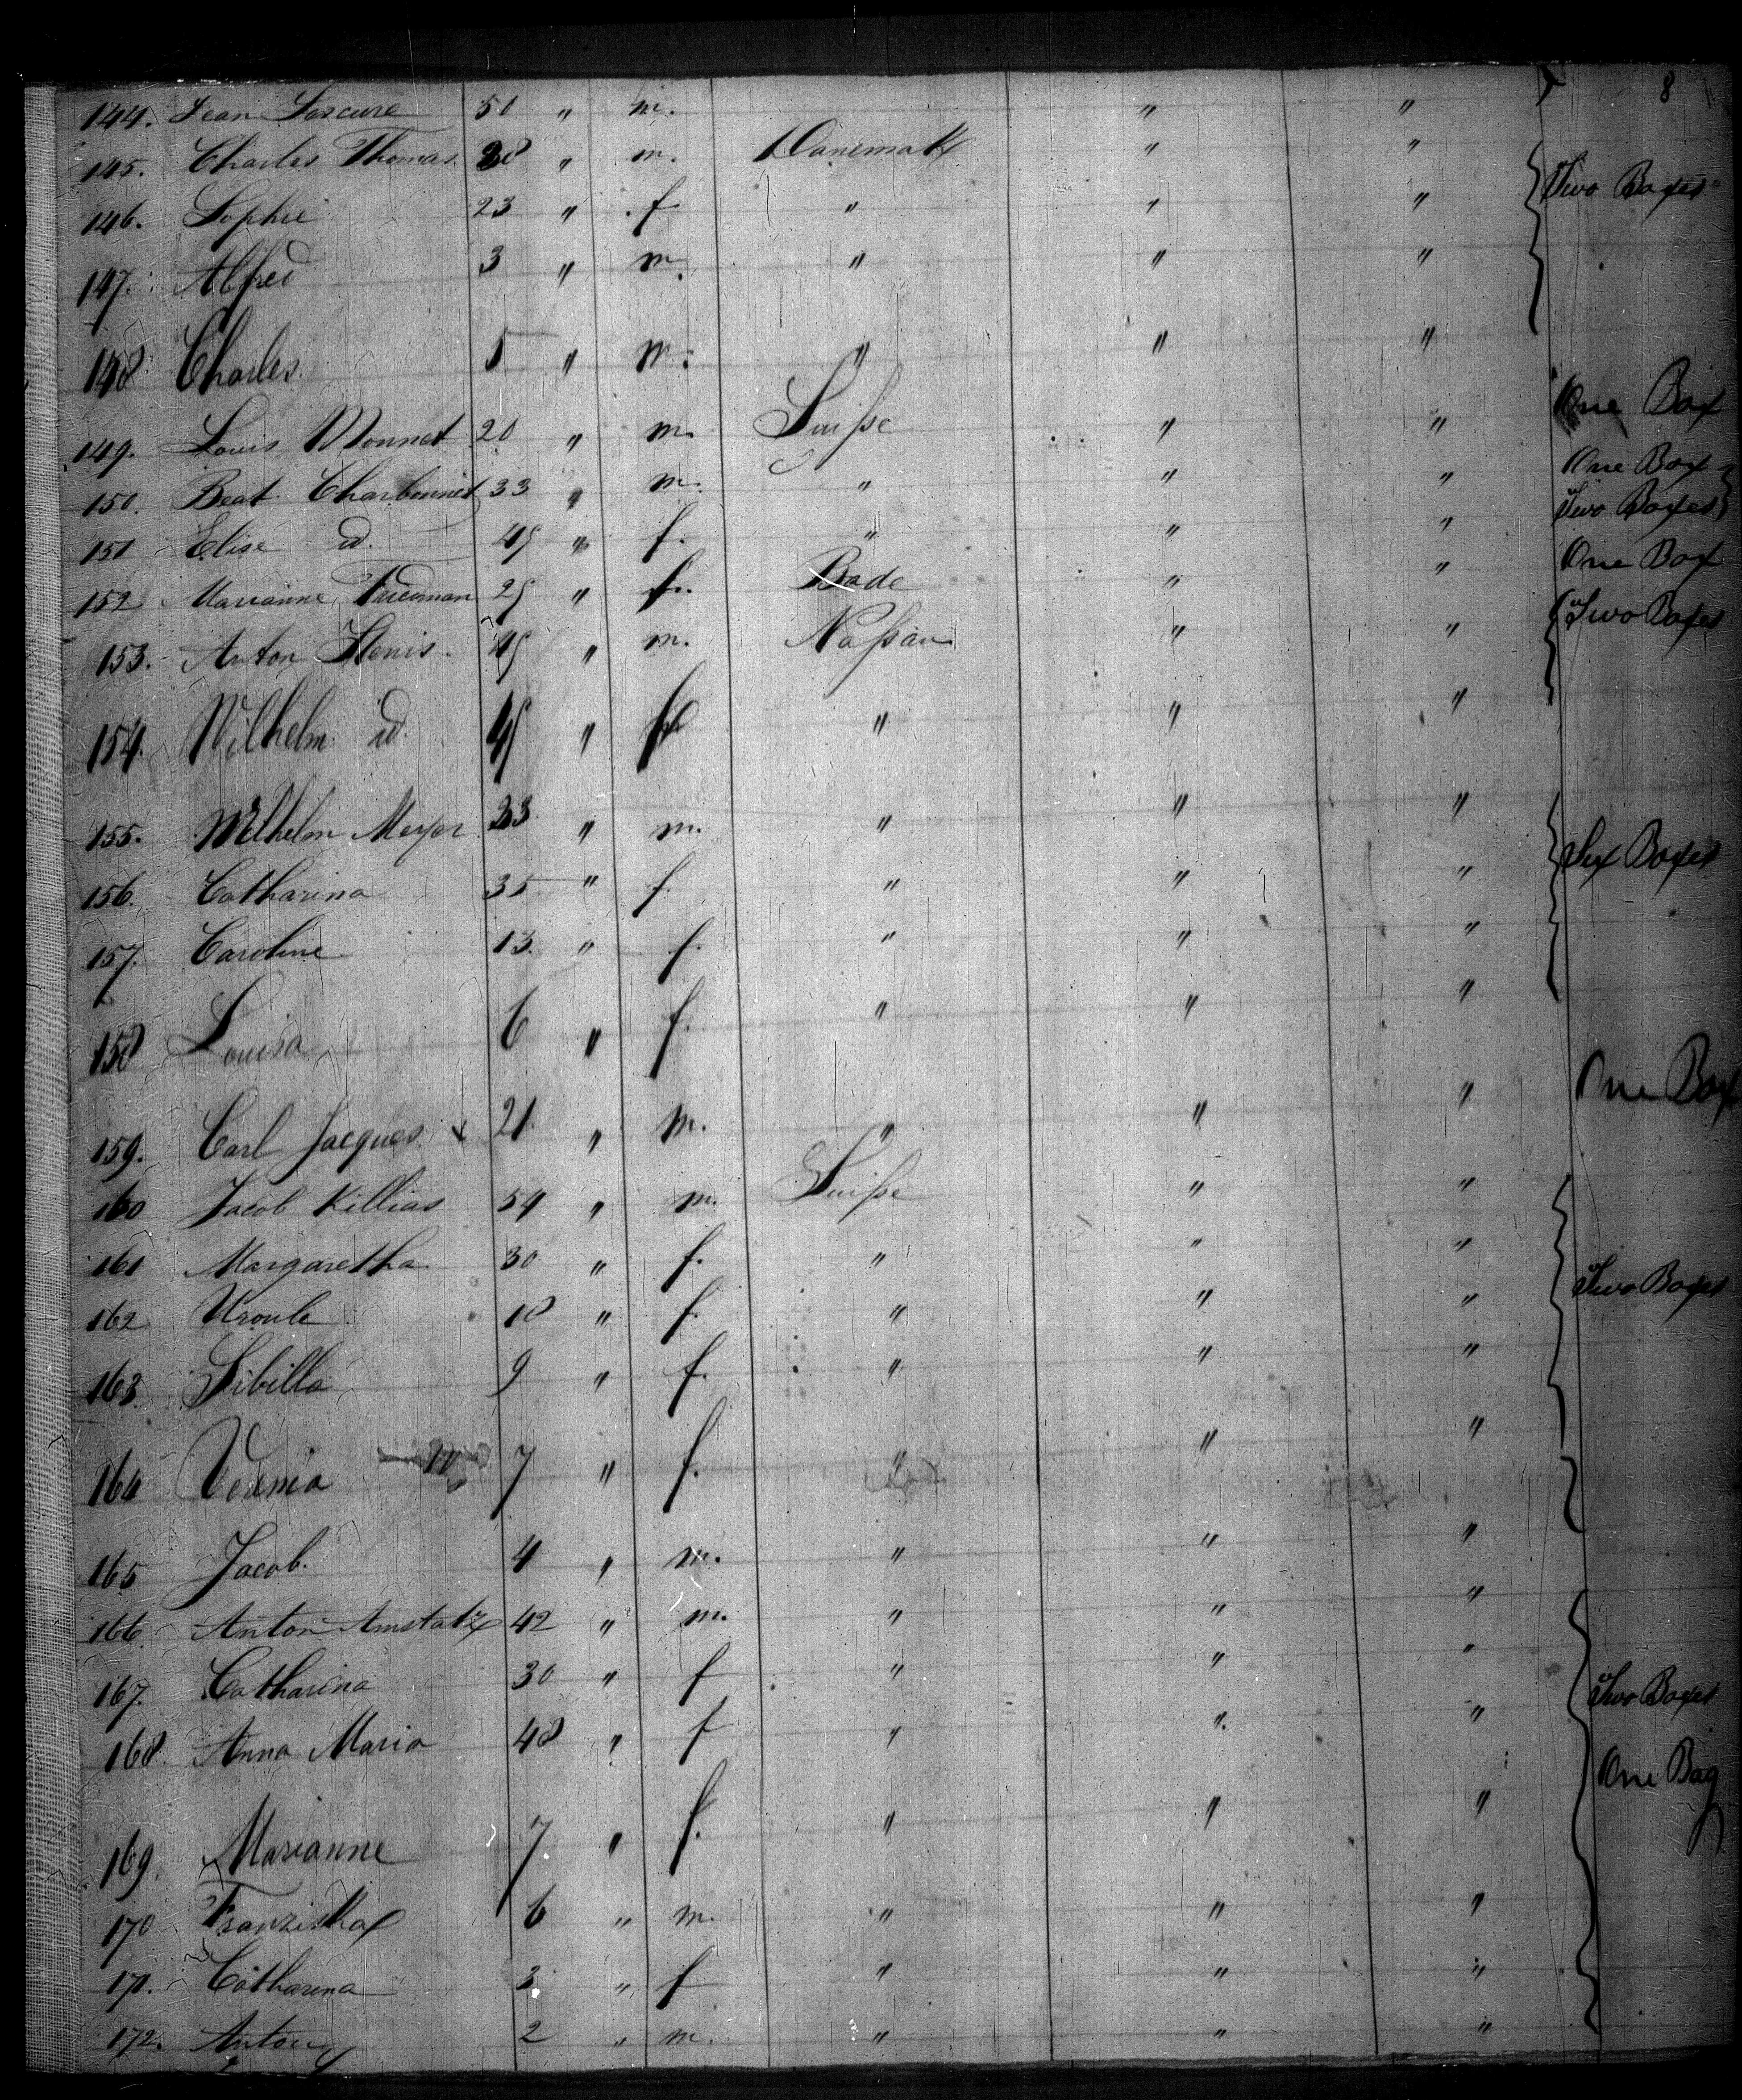 8
144. Jean 50 " m. " "
145. Charles Thomas 28 " m. Danemark " " Two Boxes
146. Sophie 23 " f " " "
147. Alfred 3 " m. " " "
148 Charles 5 " m. " " "
149. Louis Monnet 20 " m. Suiſse " " One Box
150. Beat Charbonnet 33 " m. " " " One Box
151 Elise id. 45 " f. " " " Two Boxes
152 Marianne 25 " f. Bade " " One Box
153. Anton 45 " m. Naſsau " " Two Boxes
154. Wilhelm id. 45 " f " " "
155. Wilhelm Meyer 33 " m. " " " Six Boxes
156. Catharina 35 " f. " " "
157. Caroline 13. " f. " " "
158 Louisa 6 " f. " " "
159. Carl Jacques 21. " m. " " " One Box
160 Jacob Killias 54 " m. Suiſse " "
161 Margaretha 30 " f. " " "
162 Ursule 18 " f. " " " Two Boxes
163 Sibilla 9 " f. " " "
164 7 " f. " " "
165 Jacob. 4 " m. " " "
166 Anton Amstatz 42 " m. " " "
167. Catharina 30 " f " " " Two Boxes
168. Anna Maria 48 " f " " " One Bag
169. Marianne 7 " f. " " "
170 Franziska 6 " m. " " "
171. Catharina 3 " f " " "
172. Anton 2 " m. " " "